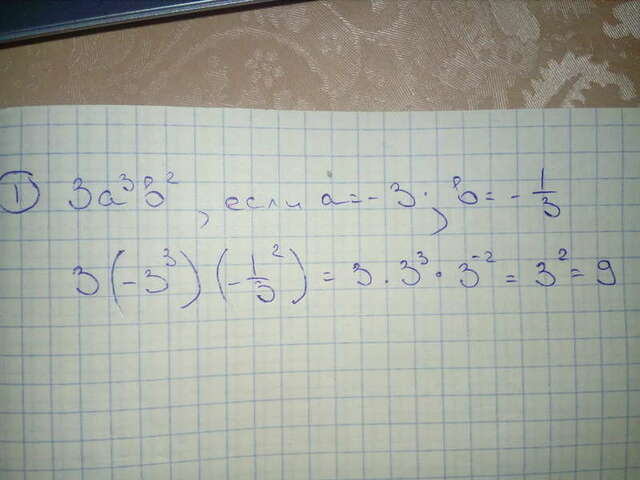 ① 3a³b², если a=-3; b=-1/3
3(-3³)(-1/3²) = 3·3³·3⁻² = 3² = 9